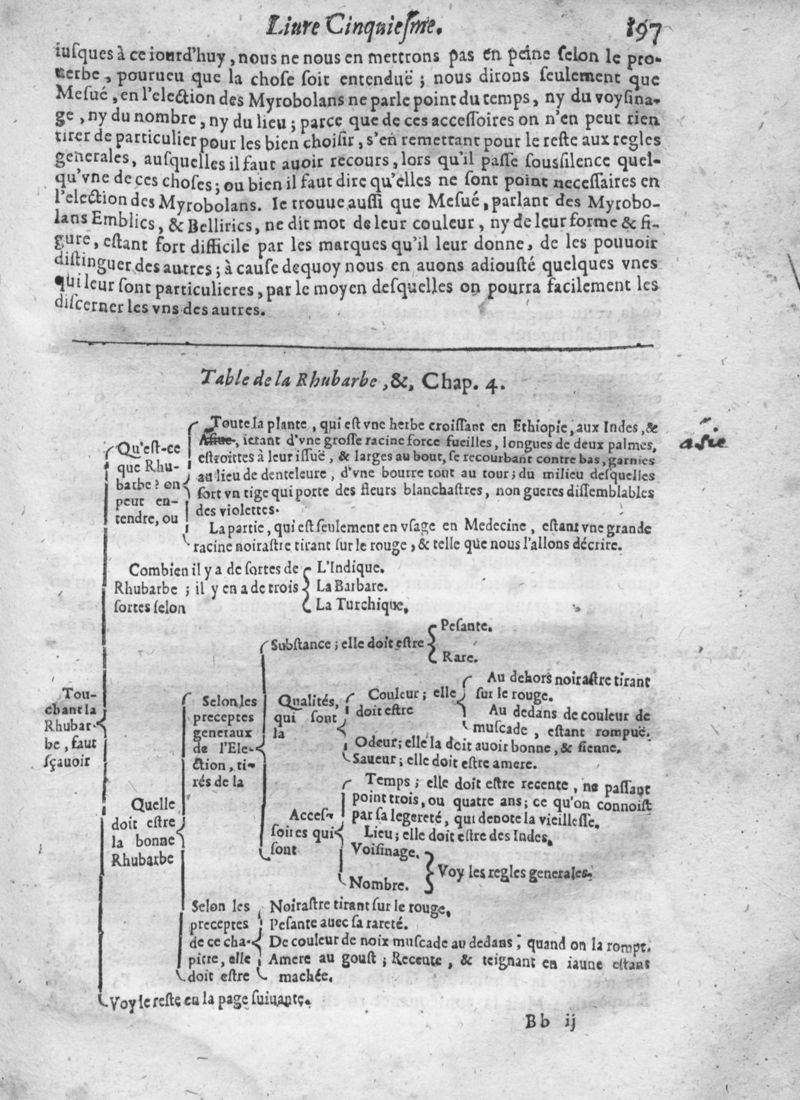 Liure Cinquiesme. 197
iusques à ce iourd'huy, nous ne nous en mettrons pas en peine selon le pro-
uerbe, pourueu que la chose soit entenduë; nous dirons seulement que
Mesué, en l'election des Myrobolans ne parle point du temps, ny du voysina-
ge, ny du nombre, ny du lieu; parce que de ces accessoires on n'en peut rien
tirer de particulier pour les bien choisir, s'en remettant pour le reste aux regles
generales, ausquelles il faut auoir recours, lors qu'il passe soussilence quel-
qu'vne de ces choses; ou bien il faut dire qu'elles ne sont point necessaires en
l'election des Myrobolans. Ie trouue aussi que Mesué, parlant des Myrobo-
lans Emblics, & Bellirics, ne dit mot de leur couleur, ny de leur forme & fi-
gure, estant fort difficile par les marques qu'il leur donne, de les pouuoir
distinguer des autres; à cause dequoy nous en auons adiousté quelques vnes
qui leur sont particulieres, par le moyen desquelles on pourra facilement les
discerner les vns des autres.
Table de la Rhubarbe, &, Chap. 4.
Touchant la
Rhubar-
be, faut
sçauoir
Qu'est-ce
que Rhu-
barbe? on
peut en-
tendre, ou
Toute la plante, qui est vne herbe croissant en Ethiopie, aux Indes, &
ietant d'vne grosse racine force fueilles, longues de deux palmes,
asie
estroittes à leur issuë, & larges au bout, se recourbant contre bas, garnies
au lieu de denteleure, d'vne bourre tout au tour; du milieu desquelles
sort vn tige qui porte des fleurs blanchastres, non gueres dissemblables
des violettes.
La partie, qui est seulement en vsage en Medecine, estant vne grande
racine noirastre tirant sur le rouge, & telle que nous l'allons décrire.
Combien il y a de sortes de
Rhubarbe; il y en a de trois
sortes selon
L'Indique.
La Barbare.
La Turchique.
Quelle
doit estre
la bonne
Rhubarbe
Selon les
preceptes
generaux
de l'Ele-
ction, ti-
rés de la
Substance; elle doit estre
Pesante.
Rare.
Qualités,
qui sont
la
Couleur; elle
doit estre
Au dehors noirastre tirant
sur le rouge.
Au dedans de couleur de
muscade, estant rompuë.
Odeur; elle la doit auoir bonne, & sienne.
Saueur; elle doit estre amere.
Acces-
soires qui
sont
Temps; elle doit estre recente, ne passant
point trois, ou quatre ans; ce qu'on connoist
par sa legereté, qui denote la vieillesse.
Lieu; elle doit estre des Indes.
Voisinage.
Nombre.
Voy les regles generales.
Selon les
preceptes
de ce cha-
pitre, elle
doit estre
Noirastre tirant sur le rouge.
Pesante auec sa rareté.
De couleur de noix muscade au dedans; quand on la rompt.
Amere au goust; Recente, & teignant en iaune estant
machée.
Voy le reste en la page suiuante.
Bb ij